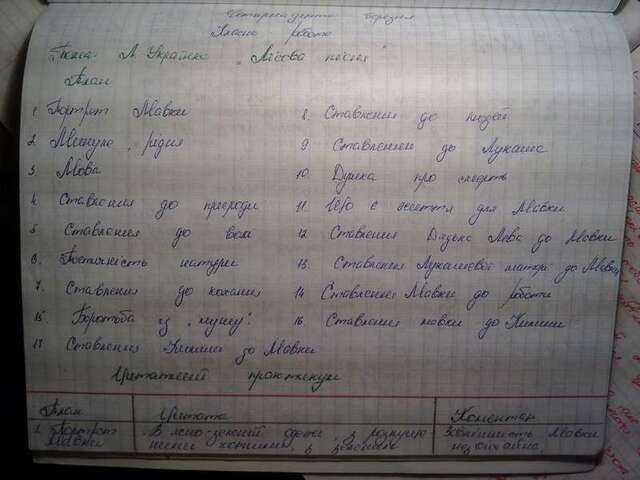 Чотирнадцяте березня
Класна робота
Тема: Л. Українка „Лісова пісня"
План
1 Портрет Мавки
2 Минуле, рідня
3 Мова
4 Ставлення до природи
5 Ставлення до волі
6 Поетичність натури
7. Ставлення до кохання
15. Боротьба із „тушу".
17 Ставлення Килини до Мавки
8. Ставлення до людей
9. Ставлення до Лукаша
10. Думка про смерть
11. Що є життя для Мавки
12. Ставлення Дядька Лева до Мавки
13. Ставлення Лукашевої матері до Мавки
14 Ставлення Мавки до роботи
16. Ставлення мавки до Килини
Цитатний практикум
План Цитата Коментар
1. Портрет Мавки
В ясно-зеленій одежі, з розпущеними чорними, з зеленим
Зовнішність Мавки незвичайна